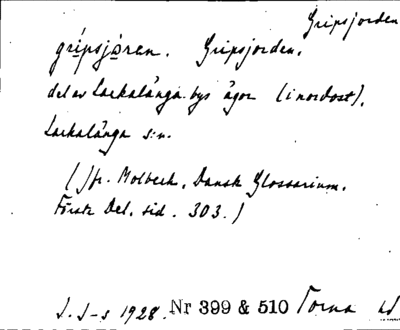 Gripsjorden
grípsjǫ́ren. Gripsjorden.
del av Lackalänga bys ägor (i nordost).
Lackalänga s:n.
(Jfr. Molbech, Dansk Glossarium.
Förste Del. sid. 303.)
I. J-s 1928. Nr 399 & 510 Torna hd